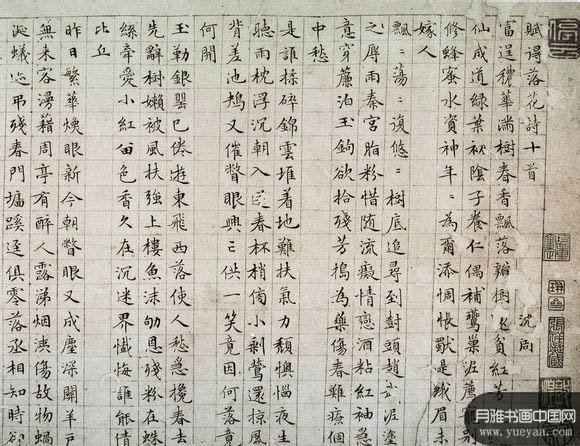 賦得落花詩十首
沈周
富逞穠華滿樹春香飄落瓣樹還貧紅芳
仙成道綠葉初陰子養仁偶補鶯巢泥薦
修蜂蜜水資神年二為爾添惆悵獸是蛾眉未
嫁人
飄二蕩二復悠二樹底追尋到對頭趙泥塗
之厚雨秦宮脂粉惜随流癡情戀酒粘紅袖急
意穿簾泊玉鉤欲拾殘芳搗為藥傷春難療個
中愁
是誰揉碎錦雲堆着地難扶氣力頹懊惱夜生
聽雨枕浮沉朝入送春杯梢傍小剥鶯還掠風
背差池鴣又催瞥眼興亡供一笑竟因何落竟
何開
玉勒銀罌已倦遊東飛西落使人愁急攙春去
先辭樹嬾被風扶強上樓魚沫劬恩殘粉在蛛
絲牽愛小紅留色香久在沉迷界懺悔誰能倩
比丘
昨日繁華煥眼新今朝瞥眼又成塵深關羊户
無來客漫藉周亭有醉人露涕烟洟傷故物蝸
涎蟻迹弔殘春門墻蹊徑俱零落丞相知時却
月雅书画中国网
www.yueyaa.com